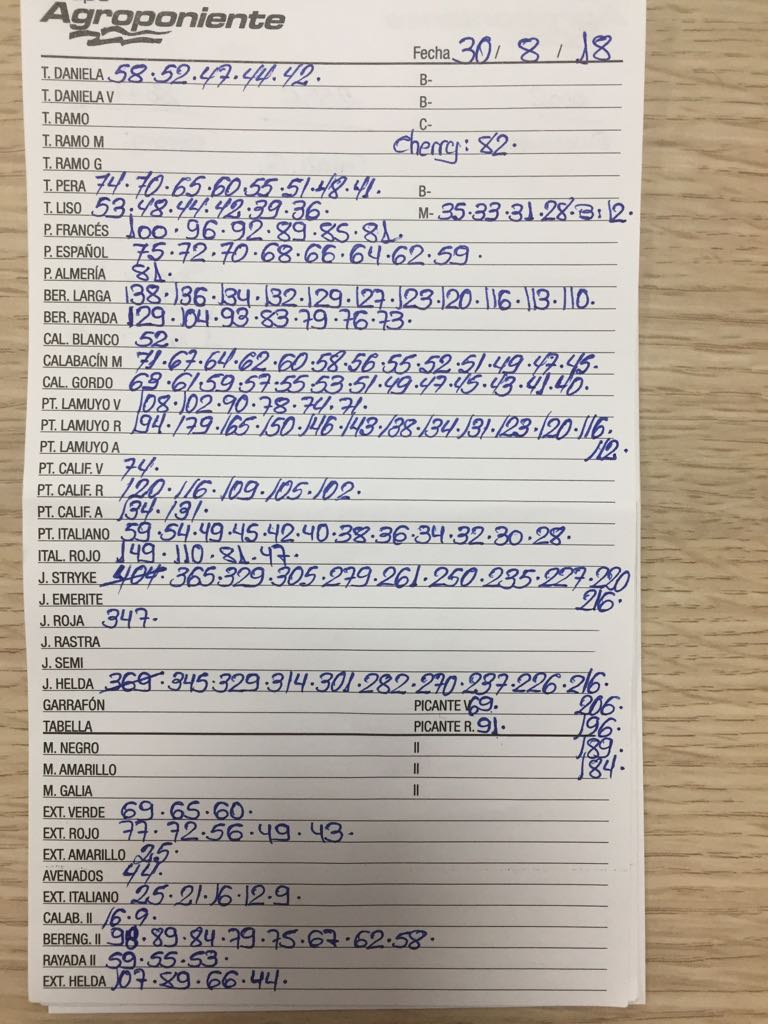 Agroponiente
Fecha 30 / 8 / 18
T. DANIELA 58.52.47.44.42. B-
T. DANIELA V B-
T. RAMO C-
T. RAMO M Cherry: 82.
T. RAMO G
T. PERA 74.70.65.60.55.51.48.41. B-
T. LISO 53.48.44.42.39.36. M- 35.33.31.28. 12.
P. FRANCÉS 100.96.92.89.85.81.
P. ESPAÑOL 75.72.70.68.66.64.62.59.
P. ALMERÍA 81.
BER. LARGA 138.136.134.132.129.127.123.120.116.113.110.
BER. RAYADA 129.104.93.83.79.76.73.
CAL. BLANCO 52.
CALABACÍN M 71.67.64.62.60.58.56.55.52.51.49.47.45.
CAL. GORDO 63.61.59.57.55.53.51.49.47.45.43.41.40.
PT. LAMUYO V 108.102.90.78.74.71.
PT. LAMUYO R 194.179.165.150.146.143.138.134.131.123.120.116.
PT. LAMUYO A 112.
PT. CALIF. V 74.
PT. CALIF. R 120.116.109.105.102.
PT. CALIF. A 134.131.
PT. ITALIANO 59.54.49.45.42.40.38.36.34.32.30.28.
ITAL. ROJO 149.110.81.47.
J. STRYKE 404.365.329.305.279.261.250.235.227.220
J. EMERITE 216.
J. ROJA 347.
J. RASTRA
J. SEMI
J. HELDA 369.345.329.314.301.282.270.237.226.216.
GARRAFÓN PICANTE V. 69. 206.
TABELLA PICANTE R. 91. 196.
M. NEGRO II 189.
M. AMARILLO II 184.
M. GALIA II
EXT. VERDE 69.65.60.
EXT. ROJO 77.72.56.49.43.
EXT. AMARILLO 25.
AVENADOS 44.
EXT. ITALIANO 25.21.16.12.9.
CALAB. II 16.9.
BERENG. II 98.89.84.79.75.67.62.58.
RAYADA II 59.55.53.
EXT. HELDA 107.89.66.44.